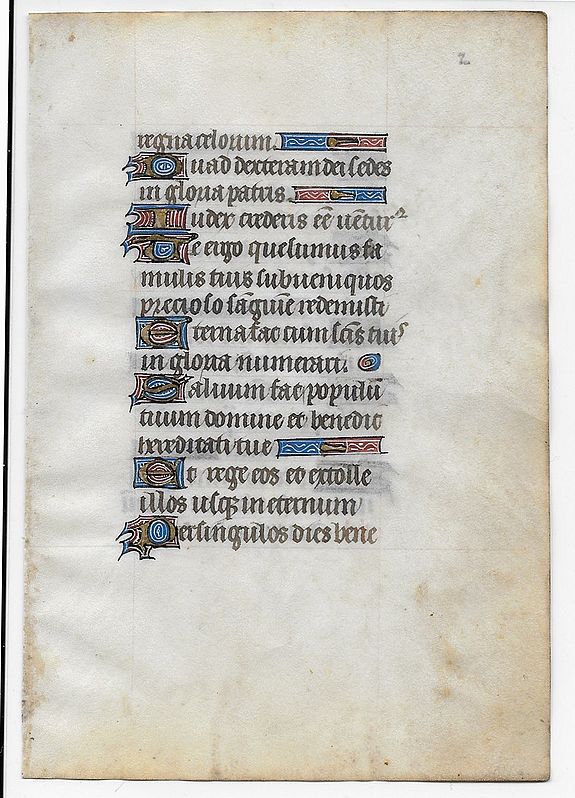 2
regna celorum.
Tu ad dexteram dei sedes
in gloria patris
Iudex crederis eē uentur⁹
Te ergo quesumus fa
mulis tuis subueni quos
precioso sāguīe redemisti
Eterna fac cum scīs tuis
in gloria numerari.
Saluum fac populū
tuum domine et benedic
hereditati tue
Et rege eos et extolle
illos usq̄ in eternum
Per singulos dies bene